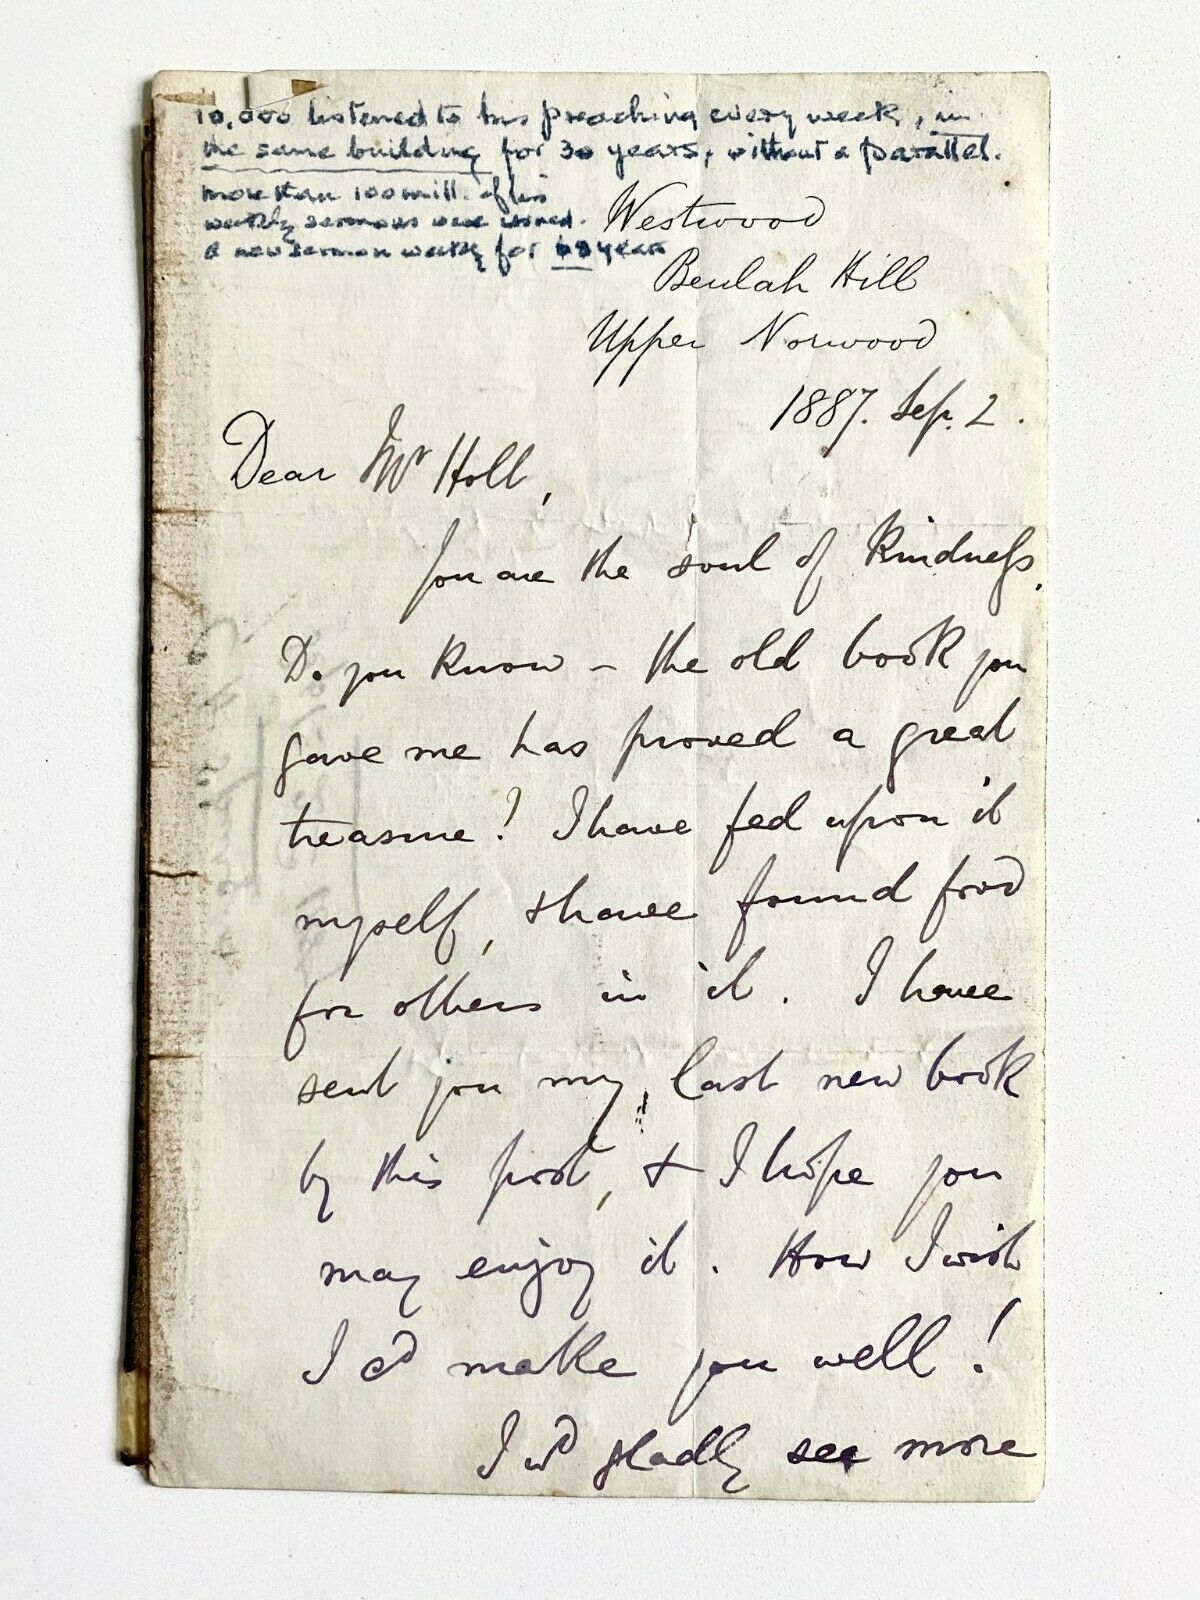 10,000 listened to his preaching every week, in
the same building for 30 years, without a parallel.
more than 100 mill. of his
weekly sermons were issued.
A new sermon weekly for years
Westwood
Beulah Hill
Upper Norwood
1887. Sep. 2.
Dear Mr Holl,
You are the soul of kindness.
Do you know – the old book you
gave me has proved a great
treasure! I have fed upon it
myself, & have found food
for others in it. I have
sent you my last new book
by this post, & I hope you
may enjoy it. How I wish
I cd make you well!
I wd gladly see more